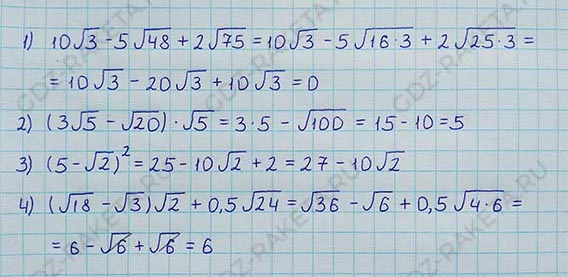 1) 10√3 - 5√48 + 2√75 = 10√3 - 5√16·3 + 2√25·3 =
= 10√3 - 20√3 + 10√3 = 0
2) (3√5 - √20)·√5 = 3·5 - √100 = 15 - 10 = 5
3) (5 - √2)² = 25 - 10√2 + 2 = 27 - 10√2
4) (√18 - √3)√2 + 0,5√24 = √36 - √6 + 0,5√4·6 =
= 6 - √6 + √6 = 6
GDZ-RAKETA.RU